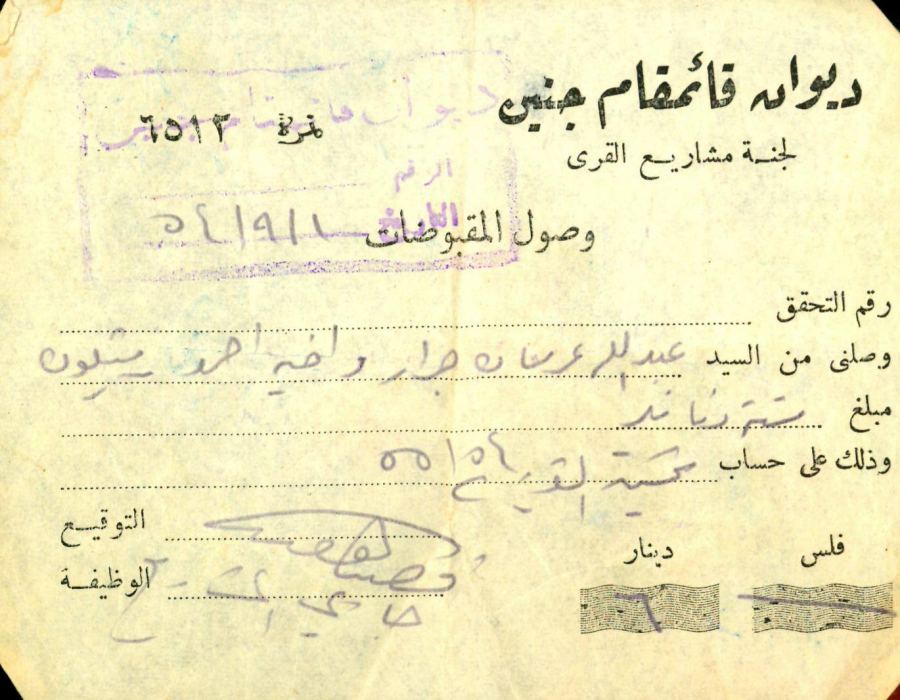 ديوان قائمقام جنين
لجنة مشاريع القرى
نمرة ٦٥١٣
ديوان قائمقام جنين
الرقم
التاريخ ٥٤/٩/١
وصول المقبوضات
رقم التحقق
وصلني من السيد عبدالله جرار واخيه احمد
مبلغ ستة دنانير
وذلك على حساب ٥٥/٥٤
فلس
دينار ٦
التوقيع
الوظيفة